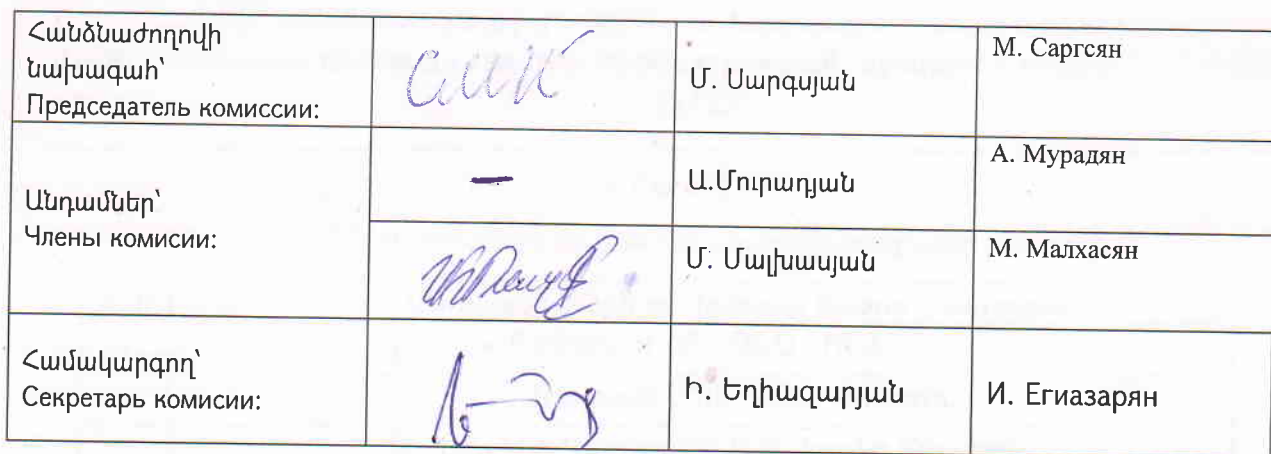 Հանձնաժողովի
նախագահ՝
Председатель комиссии:
Մ. Սարգսյան
М. Саргсян
Անդամներ՝
Члены комисии:
–
Ա.Մուրադյան
А. Мурадян
Մ. Մալխասյան
М. Малхасян
Համակարգող՝
Секретарь комисии:
Ի. Եղիազարյան
И. Егиазарян